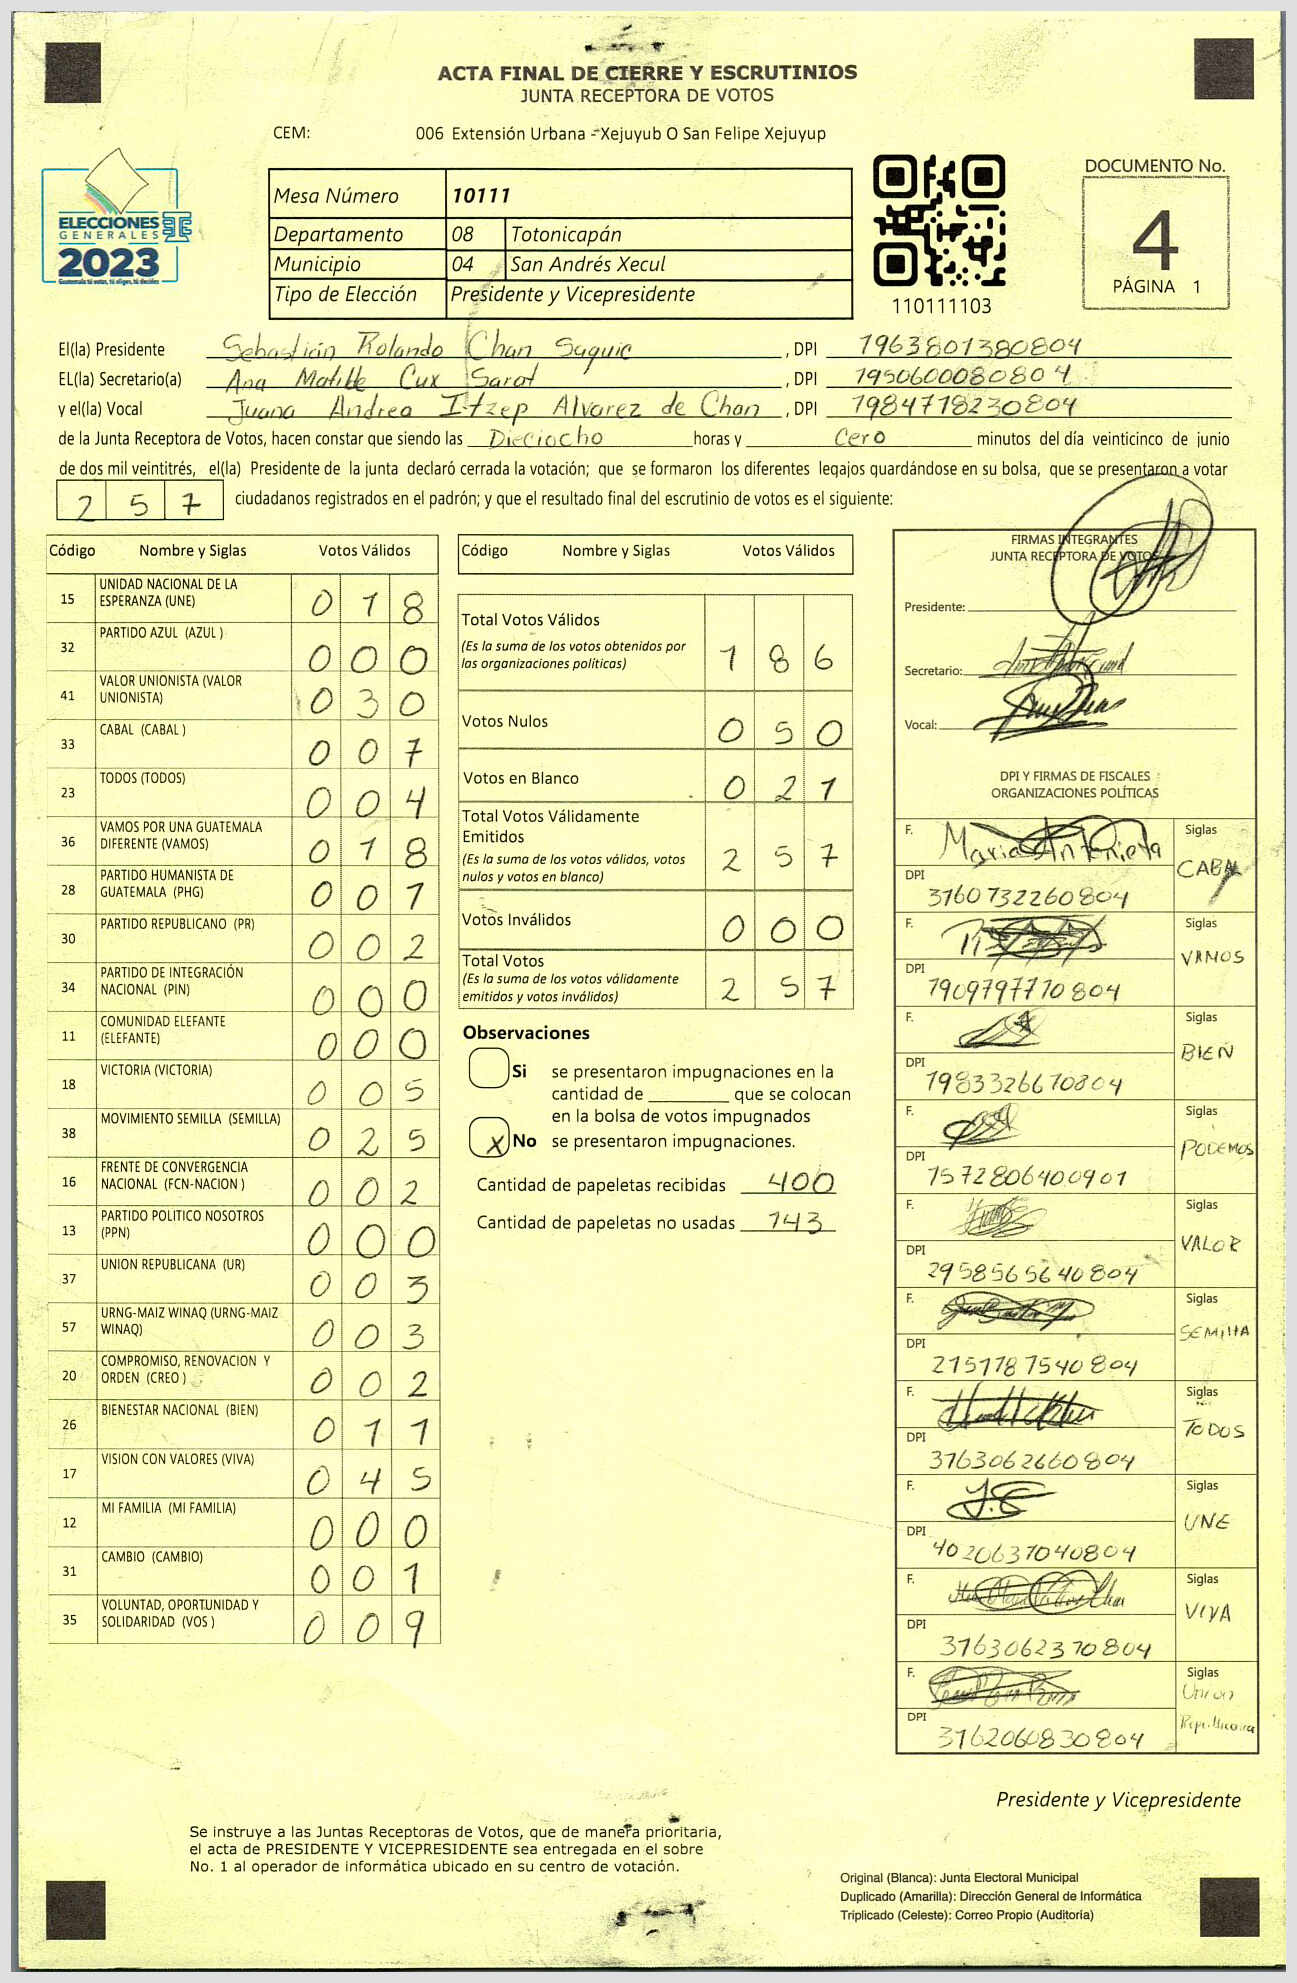 ACTA FINAL DE CIERRE Y ESCRUTINIOS
JUNTA RECEPTORA DE VOTOS
CEM: 006 Extensión Urbana - Xejuyub O San Felipe Xejuyup
ELECCIONES
GENERALES
2023
Guatemala tú votas, tú eliges, tú decides
TSE
Mesa Número 10111
Departamento 08 Totonicapán
Municipio 04 San Andrés Xecul
Tipo de Elección Presidente y Vicepresidente
110111103
DOCUMENTO No.
4
PÁGINA 1
El(la) Presidente Sebastián Rolando Chan Saquic, DPI 1963801380804
EL(la) Secretario(a) Ana Matilde Cux Sarat, DPI 1950600080804
y el(la) Vocal Juana Andrea Itzep Alvarez de Chan, DPI 1984718230804
de la Junta Receptora de Votos, hacen constar que siendo las Dieciocho horas y Cero minutos del día veinticinco de junio
de dos mil veintitrés, el(la) Presidente de la junta declaró cerrada la votación; que se formaron los diferentes legajos guardándose en su bolsa, que se presentaron a votar
257 ciudadanos registrados en el padrón; y que el resultado final del escrutinio de votos es el siguiente:
Código Nombre y Siglas Votos Válidos
15 UNIDAD NACIONAL DE LA ESPERANZA (UNE) 018
32 PARTIDO AZUL (AZUL ) 000
41 VALOR UNIONISTA (VALOR UNIONISTA) 030
33 CABAL (CABAL ) 007
23 TODOS (TODOS) 004
36 VAMOS POR UNA GUATEMALA DIFERENTE (VAMOS) 018
28 PARTIDO HUMANISTA DE GUATEMALA (PHG) 001
30 PARTIDO REPUBLICANO (PR) 002
34 PARTIDO DE INTEGRACIÓN NACIONAL (PIN) 000
11 COMUNIDAD ELEFANTE (ELEFANTE) 000
18 VICTORIA (VICTORIA) 005
38 MOVIMIENTO SEMILLA (SEMILLA) 025
16 FRENTE DE CONVERGENCIA NACIONAL (FCN-NACION ) 002
13 PARTIDO POLITICO NOSOTROS (PPN) 000
37 UNION REPUBLICANA (UR) 003
57 URNG-MAIZ WINAQ (URNG-MAIZ WINAQ) 003
20 COMPROMISO, RENOVACION Y ORDEN (CREO ) 002
26 BIENESTAR NACIONAL (BIEN) 011
17 VISION CON VALORES (VIVA) 045
12 MI FAMILIA (MI FAMILIA) 000
31 CAMBIO (CAMBIO) 001
35 VOLUNTAD, OPORTUNIDAD Y SOLIDARIDAD (VOS ) 009
Código Nombre y Siglas Votos Válidos
Total Votos Válidos
(Es la suma de los votos obtenidos por las organizaciones políticas) 186
Votos Nulos 050
Votos en Blanco 021
Total Votos Válidamente Emitidos
(Es la suma de los votos válidos, votos nulos y votos en blanco) 257
Votos Inválidos 000
Total Votos
(Es la suma de los votos válidamente emitidos y votos inválidos) 257
Observaciones
Si se presentaron impugnaciones en la
cantidad de ________ que se colocan
en la bolsa de votos impugnados
x No se presentaron impugnaciones.
Cantidad de papeletas recibidas 400
Cantidad de papeletas no usadas 143
FIRMAS INTEGRANTES
JUNTA RECEPTORA DE VOTOS
Presidente:
Secretario:
Vocal:
DPI Y FIRMAS DE FISCALES
ORGANIZACIONES POLÍTICAS
F. Maria Antonieta Siglas CABAL
DPI 3160732260804
F. Siglas VAMOS
DPI 1909797710804
F. Siglas BIEN
DPI 1983326670804
F. Siglas PODEMOS
DPI 1572806400901
F. Siglas VALOR
DPI 2958565640804
F. Siglas SEMILLA
DPI 2151787540804
F. Siglas TODOS
DPI 3163062660804
F. J.E Siglas UNE
DPI 4020637040804
F. Siglas VIVA
DPI 3163062370804
F. Siglas Union Republicana
DPI 3162060830804
Presidente y Vicepresidente
Se instruye a las Juntas Receptoras de Votos, que de manera prioritaria,
el acta de PRESIDENTE Y VICEPRESIDENTE sea entregada en el sobre
No. 1 al operador de informática ubicado en su centro de votación.
Original (Blanca): Junta Electoral Municipal
Duplicado (Amarilla): Dirección General de Informática
Triplicado (Celeste): Correo Propio (Auditoría)